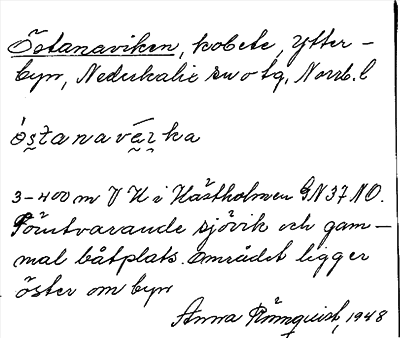 Östanaviken, kobete, Ytter-
byn, Nederkalix sn o tg, Norrb. l
östanavẹrka
3-400 m V H i Hästholmen GN 37 NO.
Förutvarande sjövik och gam-
mal båtplats. Området ligger
öster om byn
Anna Rönnquist, 1948